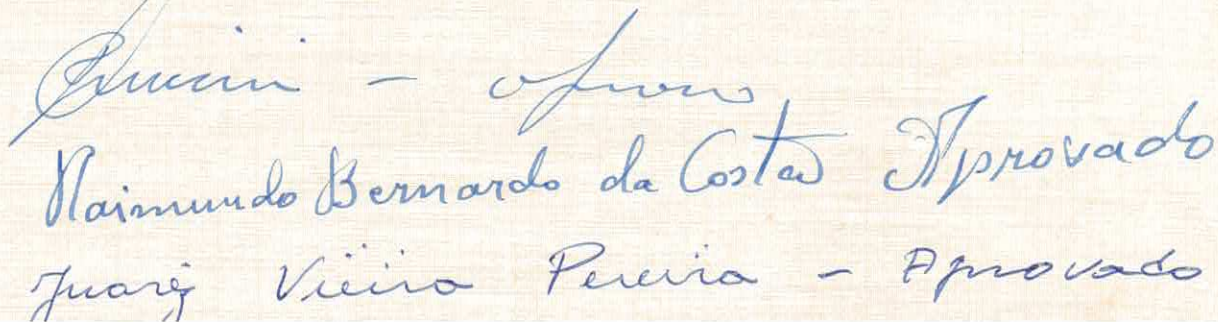 - aprovo
Raimundo Bernardo da Costa Aprovado
Juarez Vieira Pereira - Aprovado